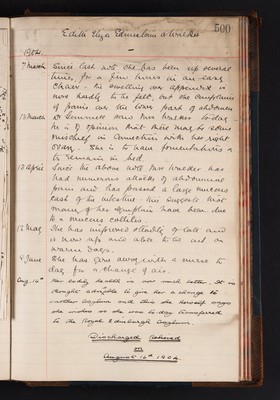 500
Edith Eliza Edmelain a Walker
1904.
7 March Since last note she has been up several
times, for a few hours in an easy
chair. The swelling over appendix is
now hardly to be felt, but she complains
of pains over the lower part of abdomen
13 March Dr saw Mrs Walker to-day
he is of opinion that there may be some
mischief in connection with her right
ovary. She is to have fomentations &
to remain in bed.
13 April Since the above note Mrs Walker has
had numerous attacks of abdominal
pain and has passed a large mucous
cast of the intestine. This suggests that
many of her symptoms have been due
to a mucous colitis
12 May She has improved steadily of late and
is now up and able to sit out on
warm days.
9 June She has gone away with a nurse to
day for a change of air.
Aug. 16th Her bodily health is now much better. It is
thought advisable to give her a change to
another Asylum and this she herself urges
she wishes so she was to-day transferred
to the Royal Edinburgh Asylum.
Discharged Relieved
on
August 16th 1904.